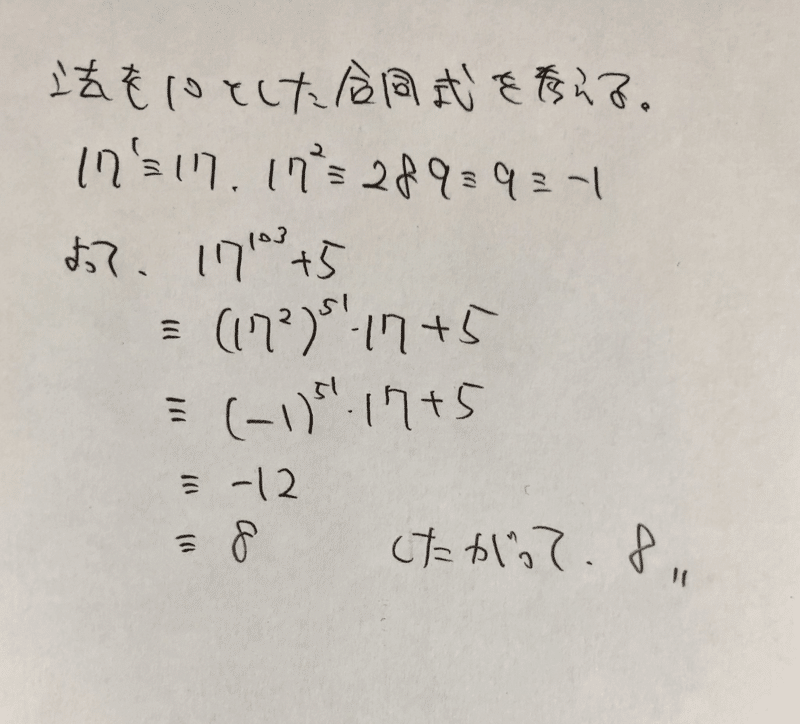 法を10とした合同式を考える。
17¹≡17. 17²≡289≡9≡-1
よって、 17¹⁰³+5
≡ (17²)⁵¹·17+5
≡ (-1)⁵¹·17+5
≡ -12
≡ 8 したがって. 8〃